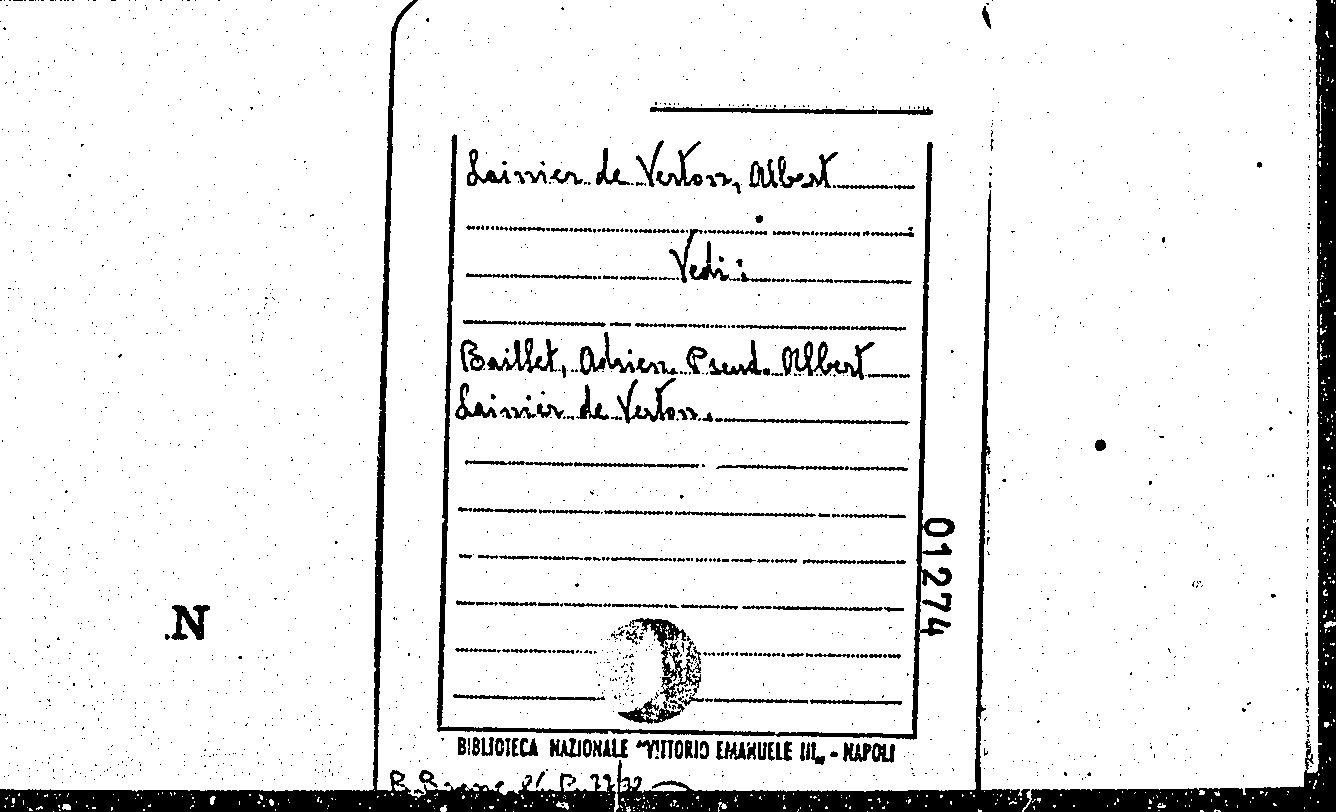 Lainier de Verton, Albert
Vedi:
Baillet, Adrien. Pseud. Albert
Lainier de Verton.
01274
N
BIBLIOTECA NAZIONALE "VITTORIO EMANUELE III" - NAPOLI